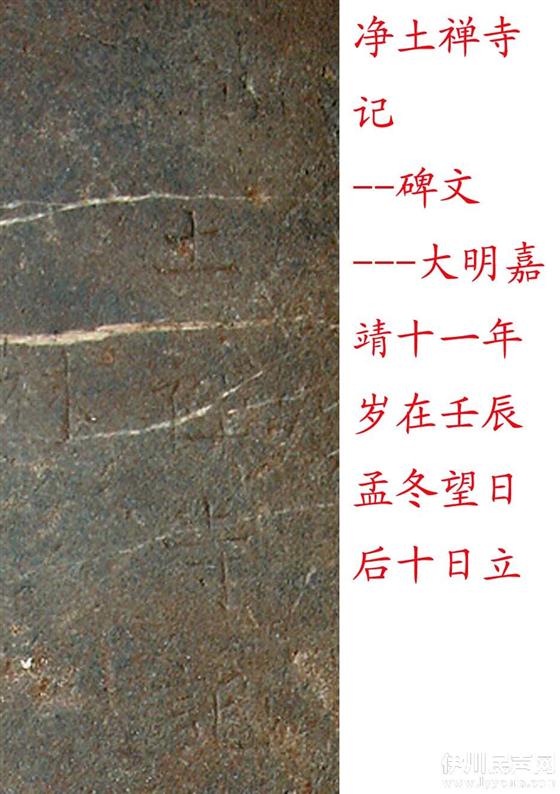 净土禅寺
记
--碑文
---大明嘉
靖十一年
岁在壬辰
孟冬望日
后十日立
土
禅
寺
记
伊川民声网